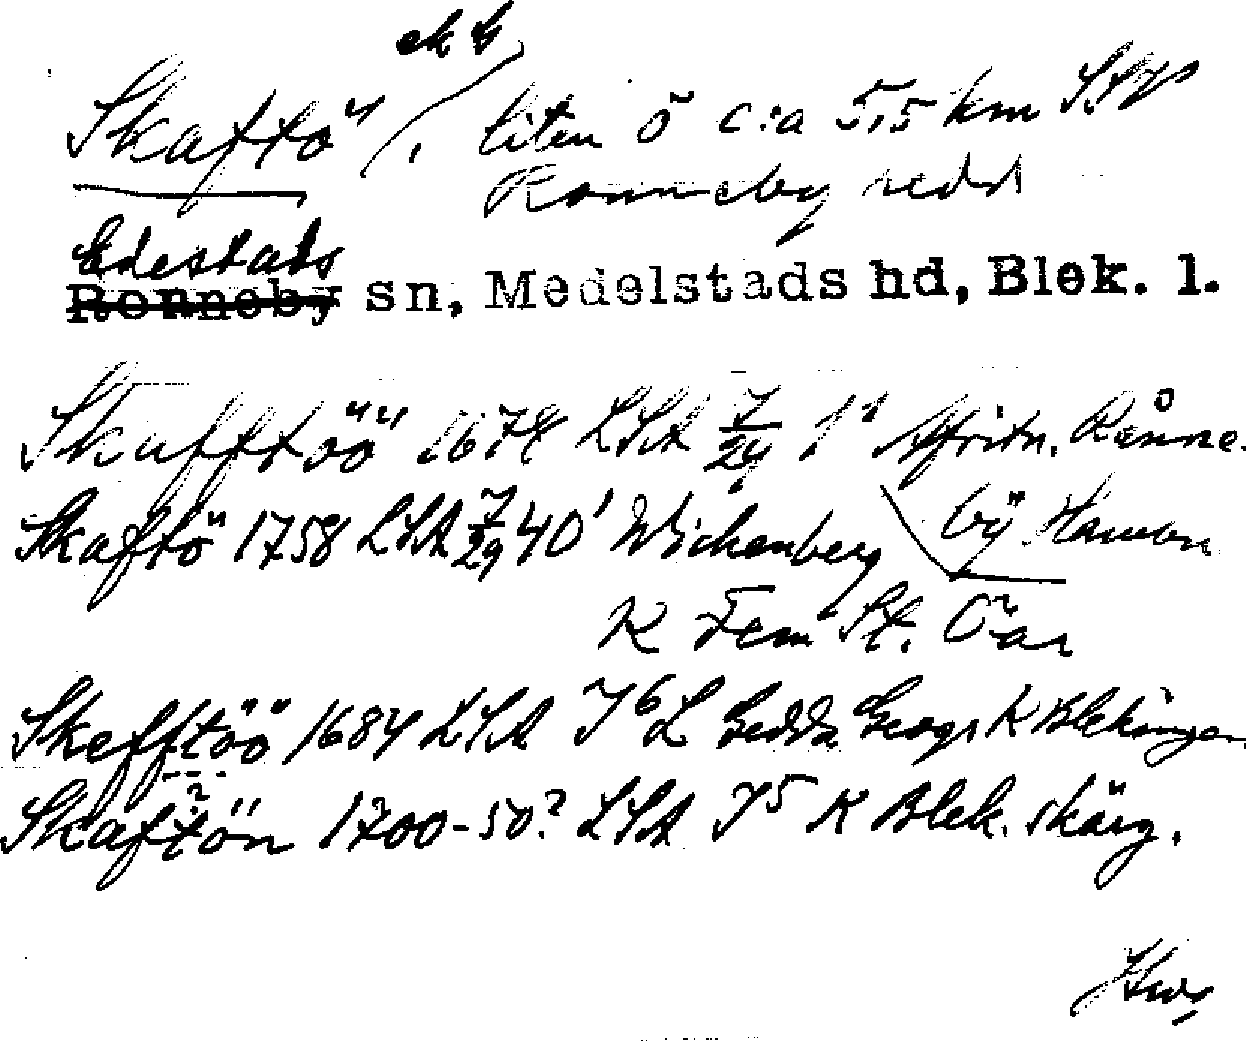 ek b
Skaftö, liten ö c:a 5,5 km SSV
Ronneby redd
Edestads
Ronneby sn, Medelstads hd, Blek. l.
Skafftöö 1674 LSA 7/29 1 Afritn. Rånne-
Skaftö 1758 LSA 7/29 40 Wickenberg by Hambn
K Fem St. Öar
Skefftöö 1684 LSA J6L Gedda Geogr K Blekingen
Skaftön 1700-50? LSA J5 K Blek. skärg.